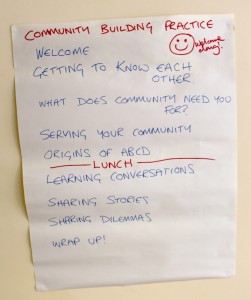 COMMUNITY BUILDING PRACTICE
Welcome
WELCOME
GETTING TO KNOW EACH
OTHER
WHAT DOES COMMUNITY NEED YOU
FOR?
SERVING YOUR COMMUNITY
ORIGINS OF ABCD
LUNCH
LEARNING CONVERSATIONS
SHARING STORIES
SHARING DILEMMAS
WRAP UP!